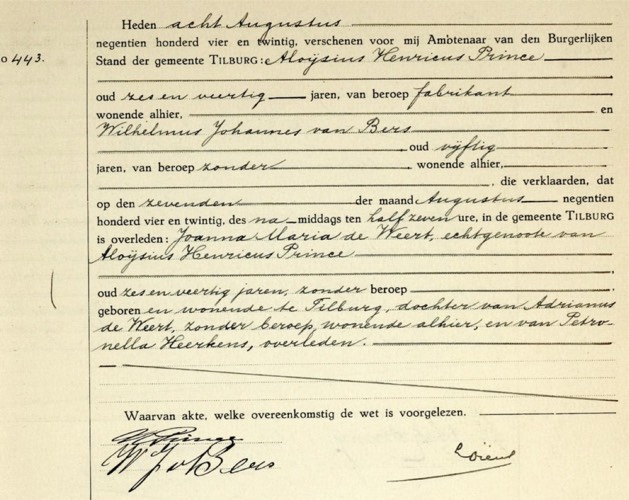 Heden acht Augustus
negentien honderd vier en twintig, verschenen voor mij Ambtenaar van den Burgerlijken
o 443. Stand der gemeente TILBURG: Aloÿsius Henricus Prince
oud zes en veertig jaren, van beroep fabrikant
wonende alhier, en
Wilhelmus Johannes van Bers
oud vÿftig
jaren, van beroep zonder wonende alhier,
, die verklaarden, dat
op den zevenden der maand Augustus negentien
honderd vier en twintig, des na middags ten half zeven ure, in de gemeente TILBURG
is overleden: Joanna Maria de Weert, echtgenoote van
Aloÿsius Henricus Prince
oud zes en veertig jaren, zonder beroep
geboren en wonende te Tilburg, dochter van Adrianus
de Weert, zonder beroep, wonende alhier, en van Petro-
nella Heerkens, overleden.
Waarvan akte, welke overeenkomstig de wet is voorgelezen.
Prince
W J v Bers